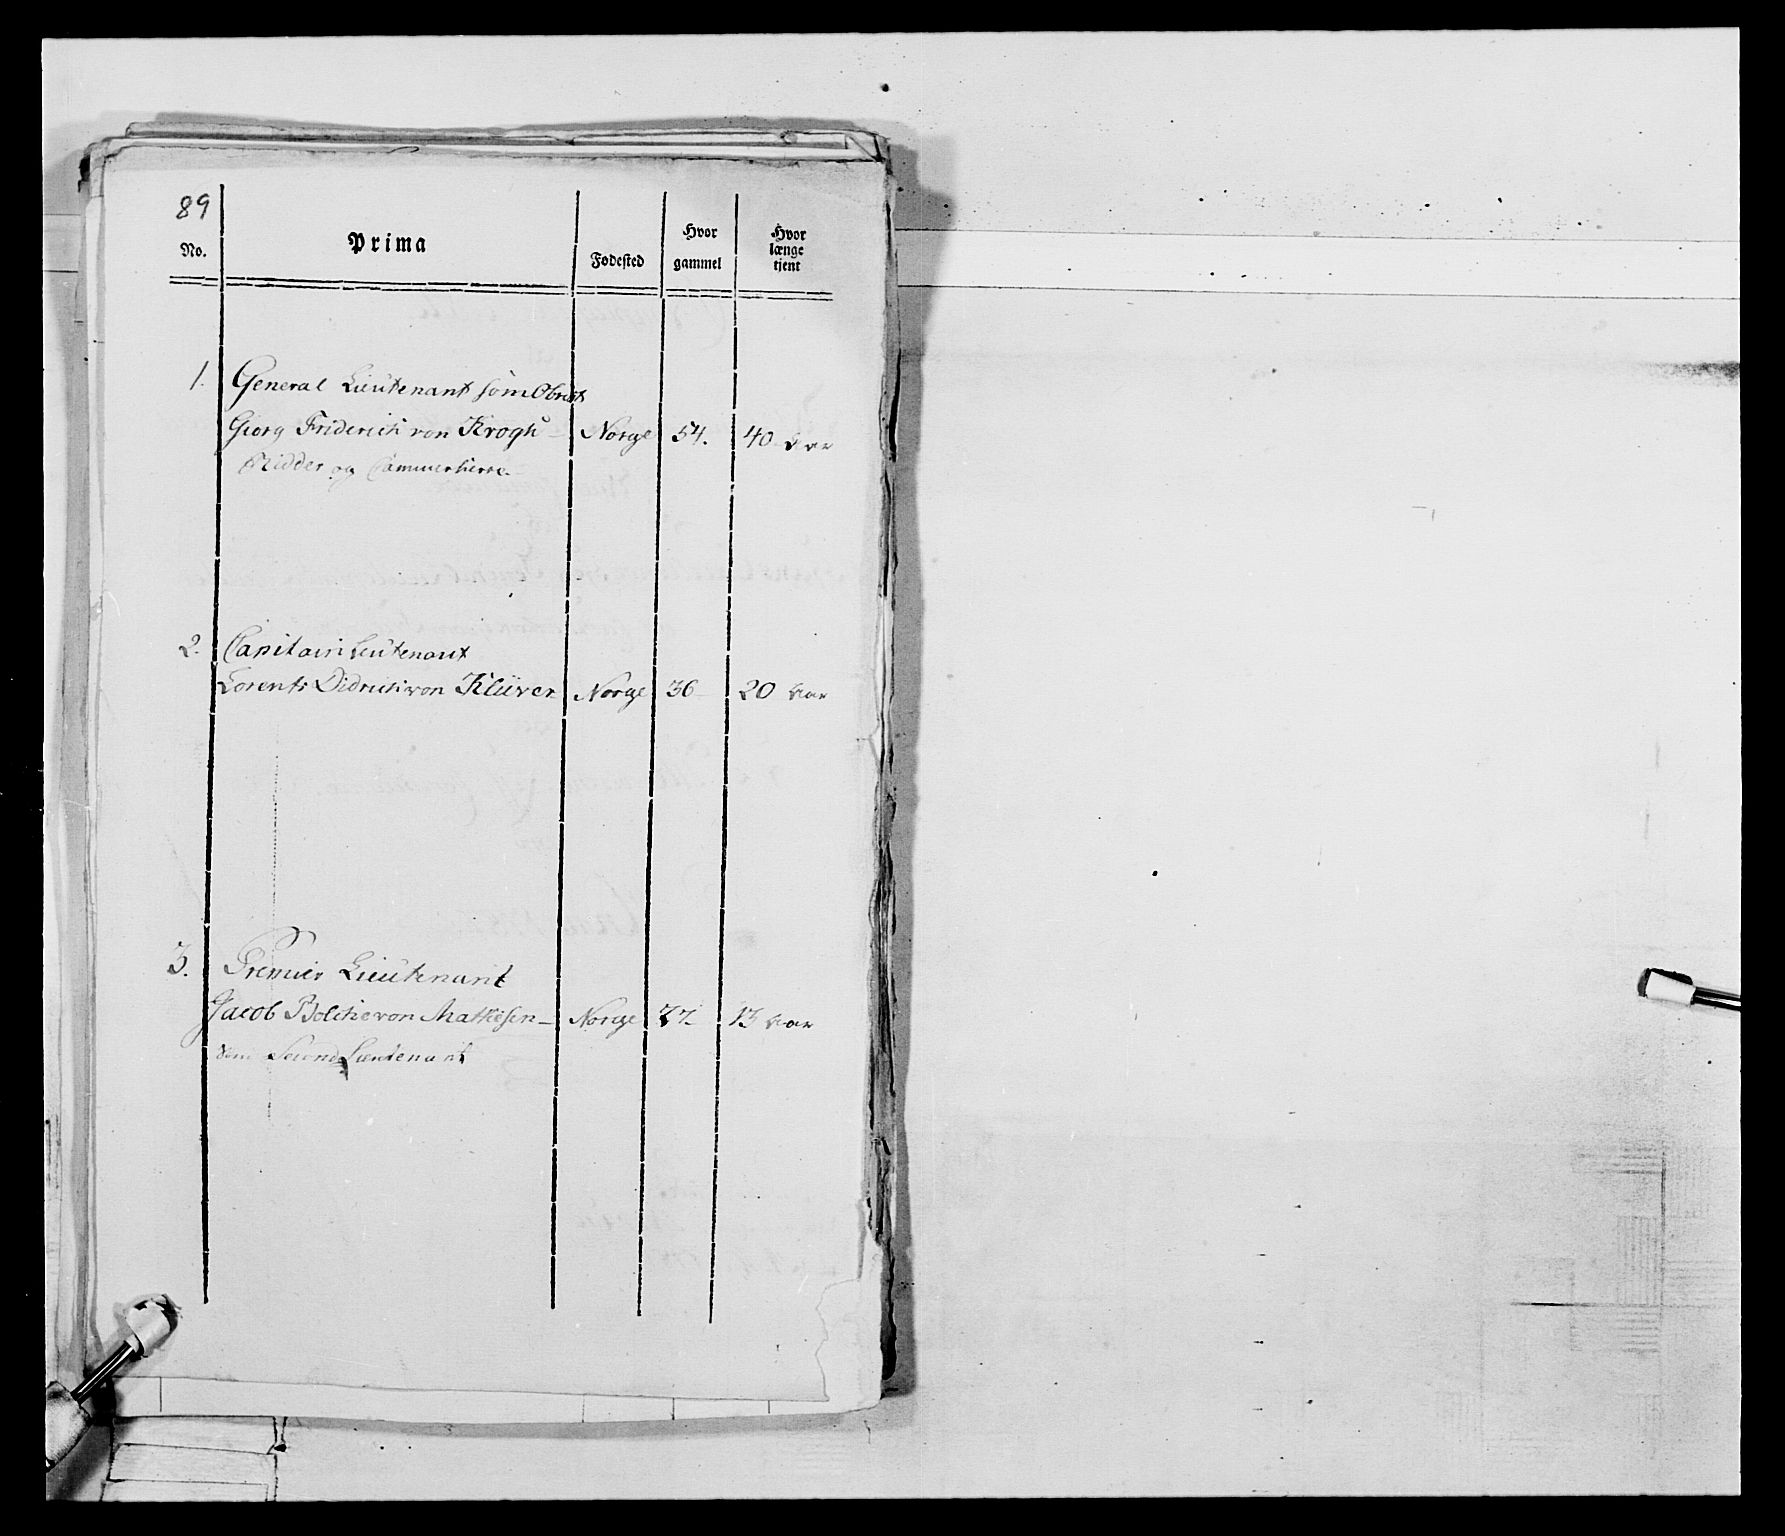 89
No. Prima Fødested Hvor gammel Hvor længe tjent
1. General Lieutenant som Obrist
Georg Friderich von Krogh – Norge 54. 40 Aar
Ridder og Cammerherre
2. Capitain Leutenant
Lorents Didrich von Klüver Norge 36 – 20 Aar
3. Premier Lieutenant
Jacob Bolche von Mathesen – Norge 27 – 13 Aar
som Second Lieutenant